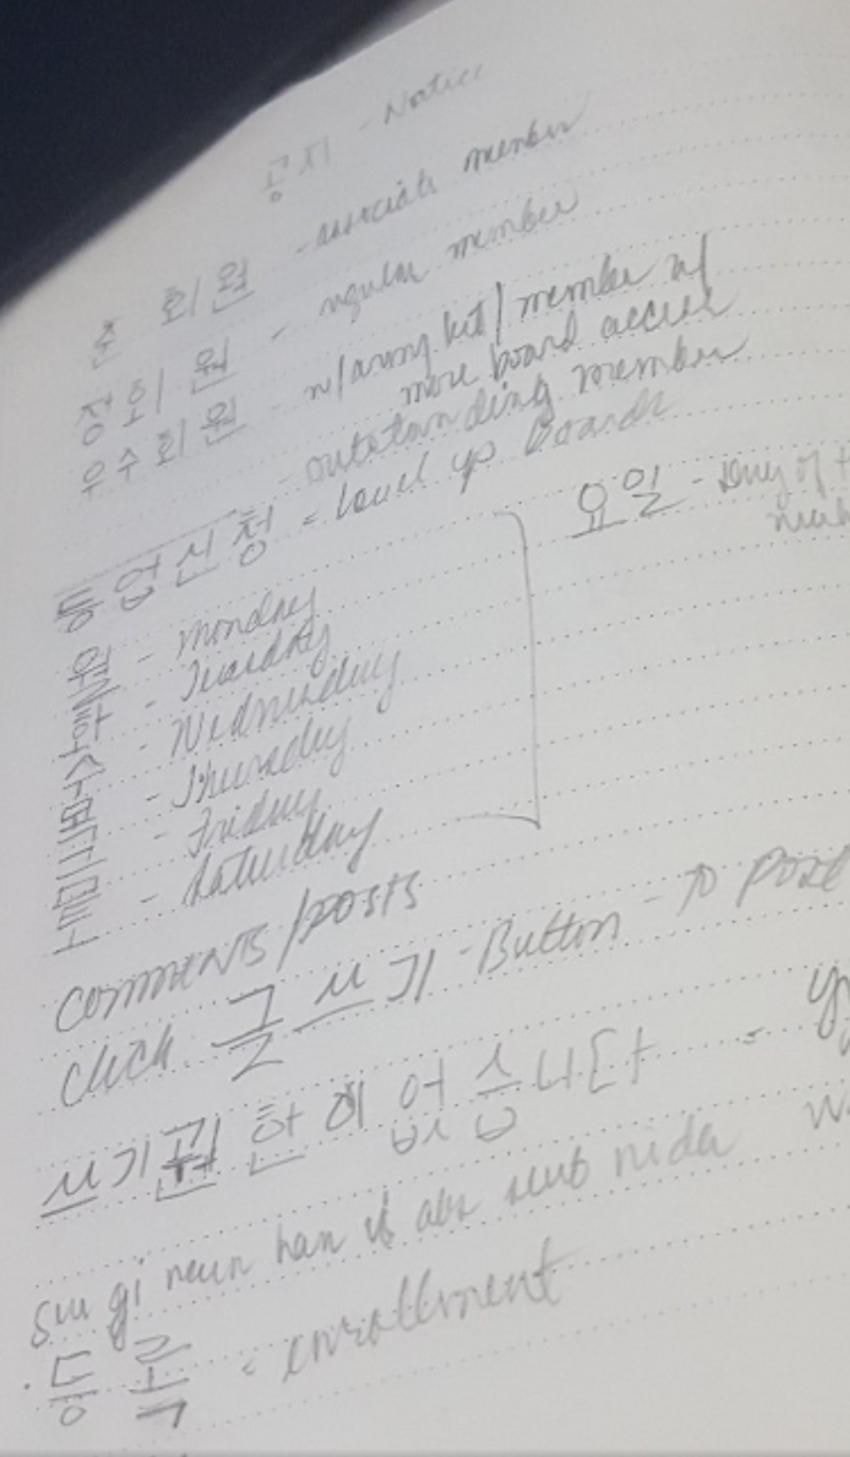 공지 - Notice
준 회원 - associate member
정회원 - regular member
우수회원 - w/army kit/member w/
more board access
- outstanding member
등업신청 = level up boards
요일 - Day of
월 - Monday
화 - Tuesday
수 - Wednesday
목 - Thursday
금 - Friday
토 - Saturday
comments/posts
click 글쓰기 - Button - to post
쓰기권한이 없습니다 =
ssu gi neun han if abs seub nida
등록 = enrollment